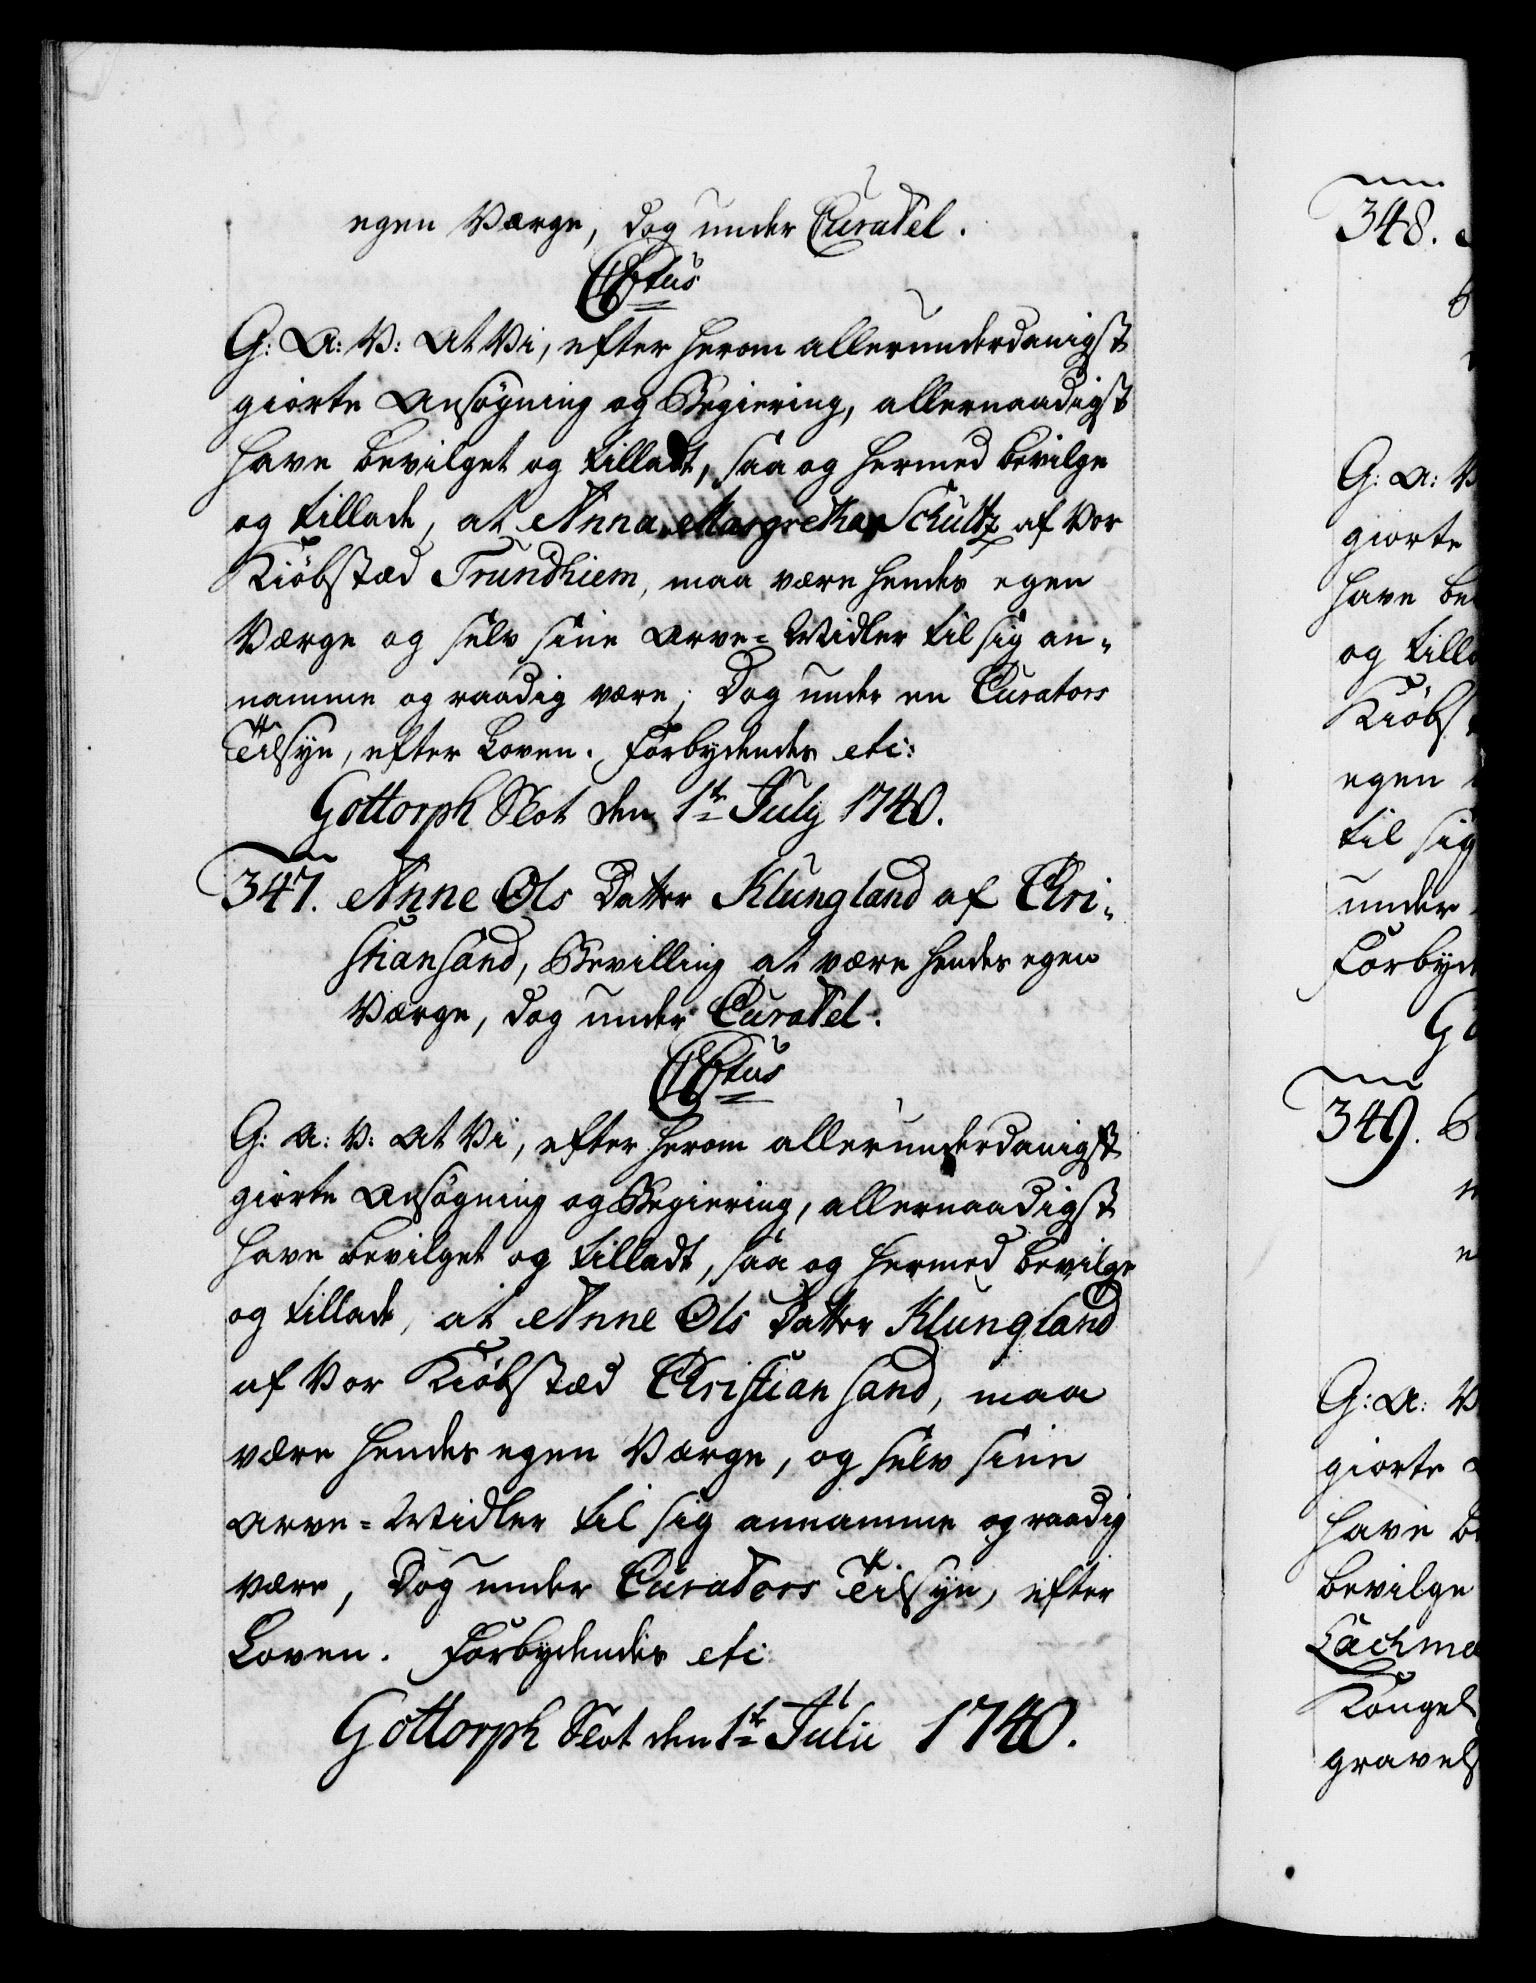 egen Værge, dog under Curatel.
C6tus
G: A: V: At Vi, efter herom allerunderdanigst
giorte Ansøgning og Begiering, allernaadigst
have bevilget og tilladt, saa og hermed bevilge
og tillade, at Anna Margretha Schultz af Vor
Kiøbstæd Trundhiem, maa være hendes egen
Værge og selv sine Arve-Midler til sig an-
namme og raadig være; Dog under en Curators
Tilsyn, efter Loven. Forbydendes etc:
Gottorph Slot den 1te July 1740.
347. Anne Ols Datter Klungland af Chri-
stiansand, Bevilling at være hendes egen
Værge, dog under Curatel.
C6tus
G: A: V: At Vi, efter herom allerunderdanigst
giorte Ansøgning og Begiering, allernaadigst
have bevilget og tilladt, saa og hermed bevilge
og tillade, at Anne Ols Datter Klungland
af Vor Kiøbstæd Christiansand, maa
være hendes egen Værge, og selv sine
Arve-Midler til sig annamme og raadig
være, Dog under Curators Tilsyn, efter
Loven. Forbydendes etc
Gottorph Slot den 1te Julii 1740.
348.
G: A: V
giorte
have be
og tilla
Kiøbst
egen
til sig
under
Forbyd
Go
349.
G: A: V
giorte
have b
bevilge
Lachma
Kongel
gravels